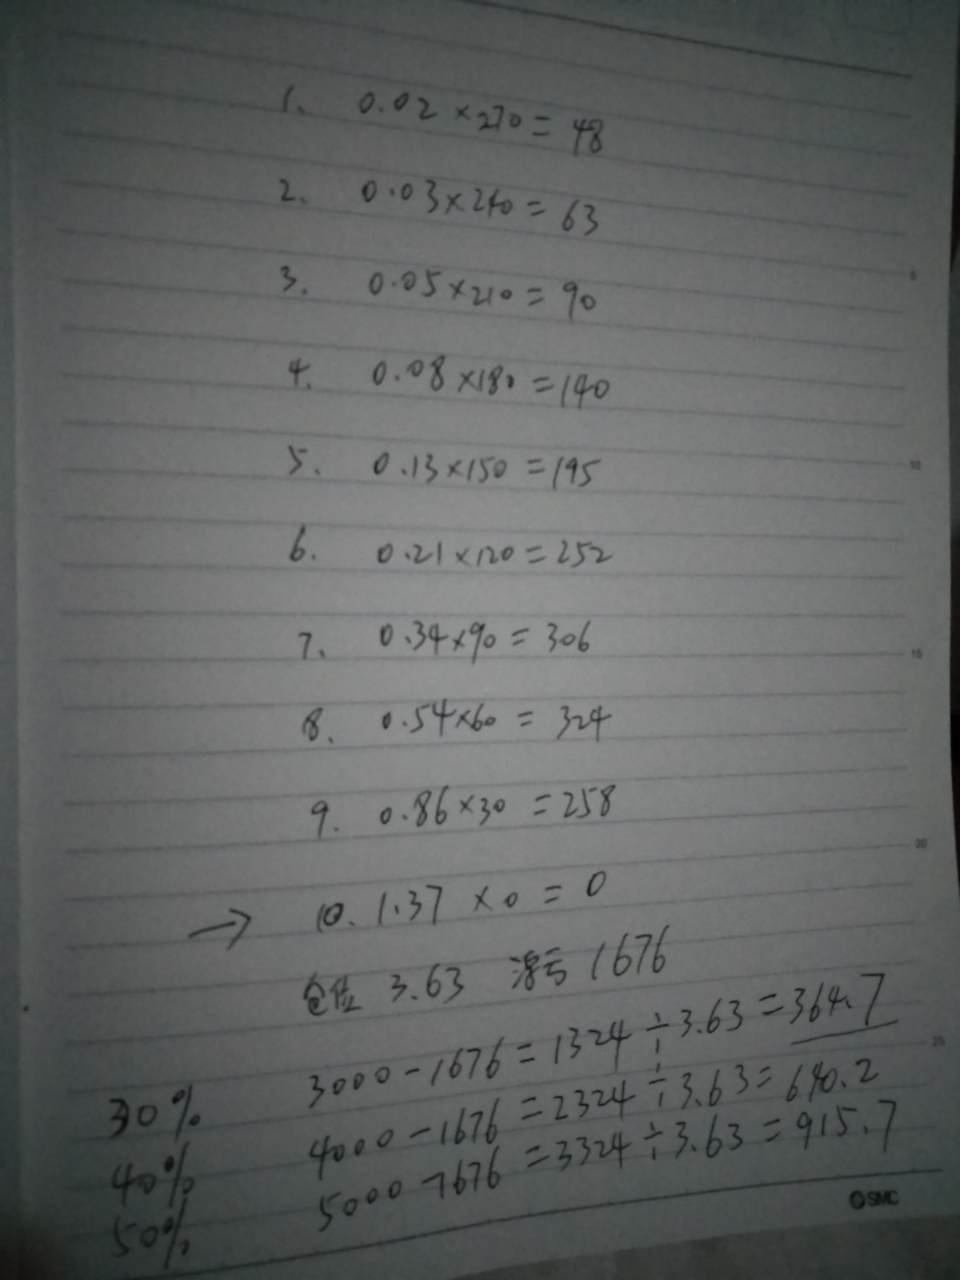 1. 0.02×270=48
2. 0.03×240=63
3. 0.05×210=90
4. 0.08×180=140
5. 0.13×150=195
6. 0.21×120=252
7. 0.34×90=306
8. 0.54×60=324
9. 0.86×30=258
→ 10. 1.37×0=0
仓位 3.63 浮亏 1676
30% 3000-1676=1324÷3.63=364.7
40% 4000-1676=2324÷3.63=640.2
50% 5000-1676=3324÷3.63=915.7
5
10
15
20
25
SMC